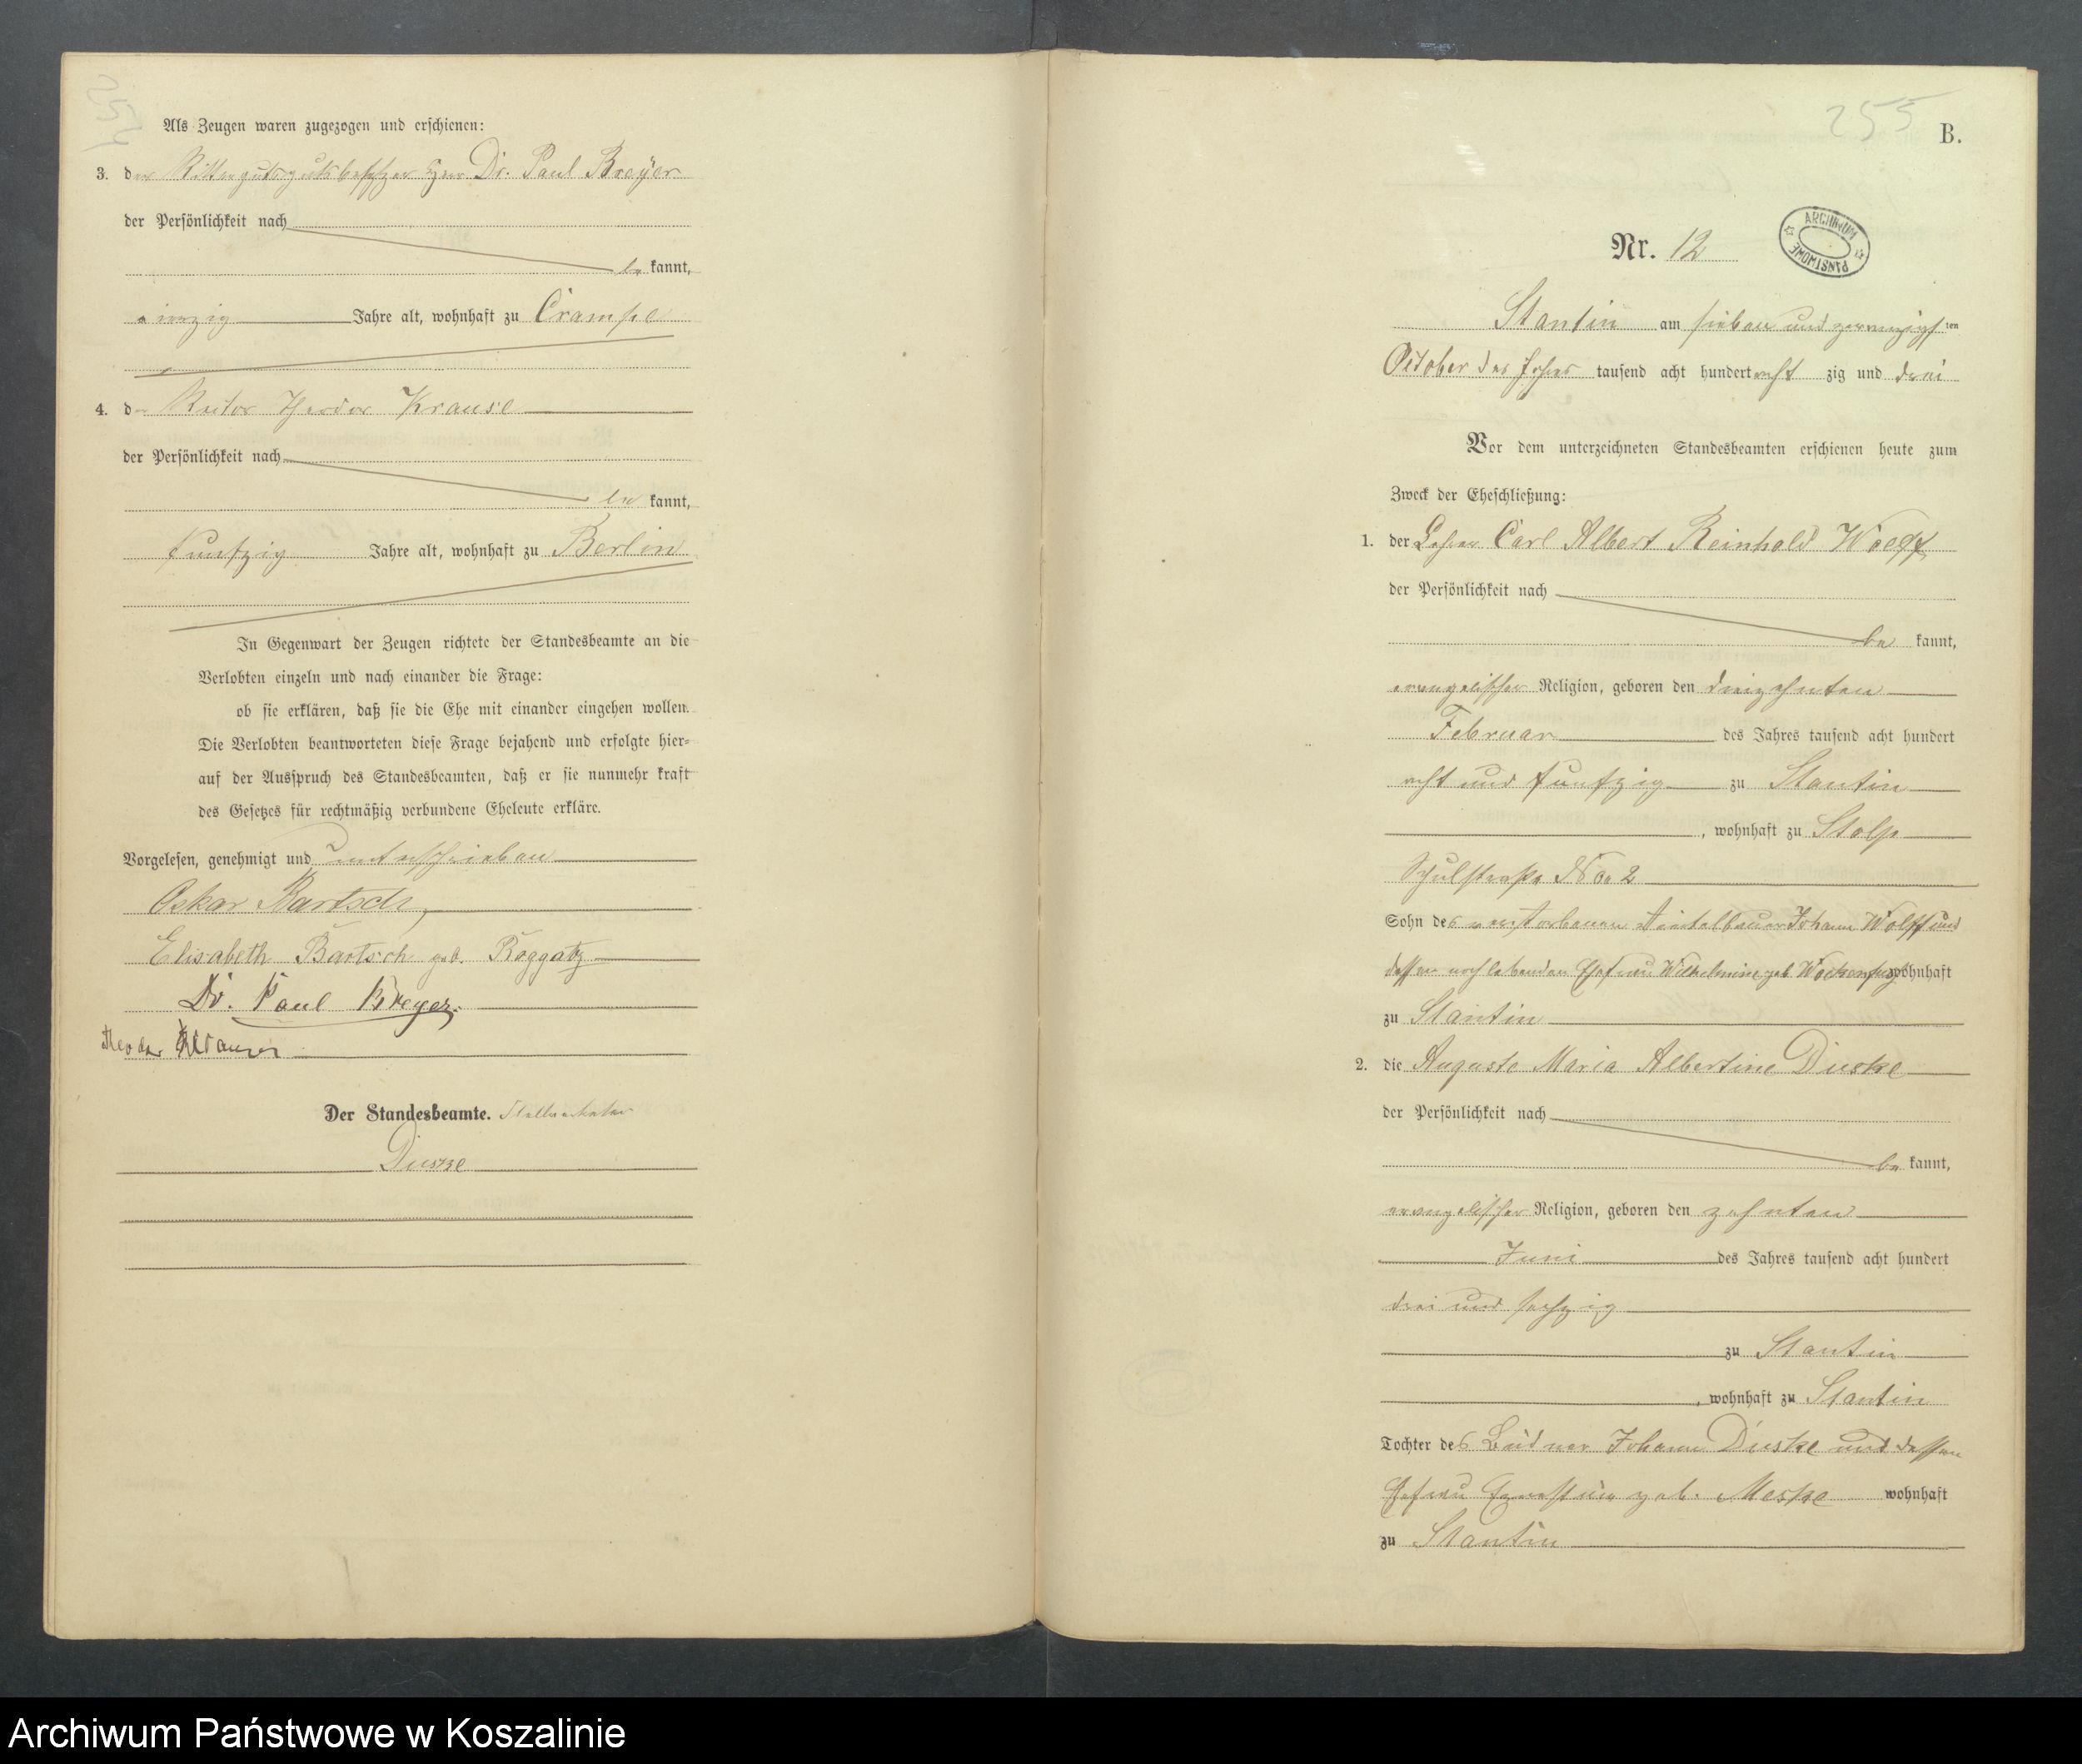 254
Als Zeugen waren zugezogen und erschienen:
3. der Rittergutsgutsbesitzer Herr Dr. Paul Breyer
der Persönlichkeit nach
be kannt,
Jahre alt, wohnhaft zu Crampe
4. der Rector Theodor Krause
der Persönlichkeit nach
be kannt,
funfzig Jahre alt, wohnhaft zu Berlin
In Gegenwart der Zeugen richtete der Standesbeamte an die
Verlobten einzeln und nach einander die Frage:
ob sie erklären, daß sie die Ehe mit einander eingehen wollen.
Die Verlobten beantworteten diese Frage bejahend und erfolgte hier-
auf der Ausspruch des Standesbeamten, daß er sie nunmehr kraft
des Gesetzes für rechtmäßig verbundene Eheleute erkläre.
Vorgelesen, genehmigt und unterschrieben
Oskar Bartsch
Elisabeth Bartsch geb. Roggatz
Dr. Paul Breyer.
Theodor Krause
Der Standesbeamte. Stellvertreter
Duske
255
B.
ARCHIWUM PAŃSTWOWE
Nr. 12
Stantin am sieben und zwanzigsten
October des Jahres tausend acht hundert acht zig und drei
Vor dem unterzeichneten Standesbeamten erschienen heute zum
Zweck der Eheschließung:
1. der Lehrer Carl Albert Reinhold Wolff
der Persönlichkeit nach
be kannt,
evangelischer Religion, geboren den dreizehnten
Februar des Jahres tausend acht hundert
acht und funfzig zu Stantin
, wohnhaft zu Stolp
Schulstraße No 2
Sohn des verstorbenen Johann Wolff und
dessen noch lebenden Ehefrau Wilhelmine geb. wohnhaft
zu Stantin
2. die Auguste Maria Albertine Duske
der Persönlichkeit nach
be kannt,
evangelischer Religion, geboren den zehnten
Juni des Jahres tausend acht hundert
drei und sechzig
zu Stantin
, wohnhaft zu Stantin
Tochter des Büdner Johann Duske und dessen
Ehefrau Ernestine geb. Meske wohnhaft
zu Stantin
Archiwum Państwowe w Koszalinie